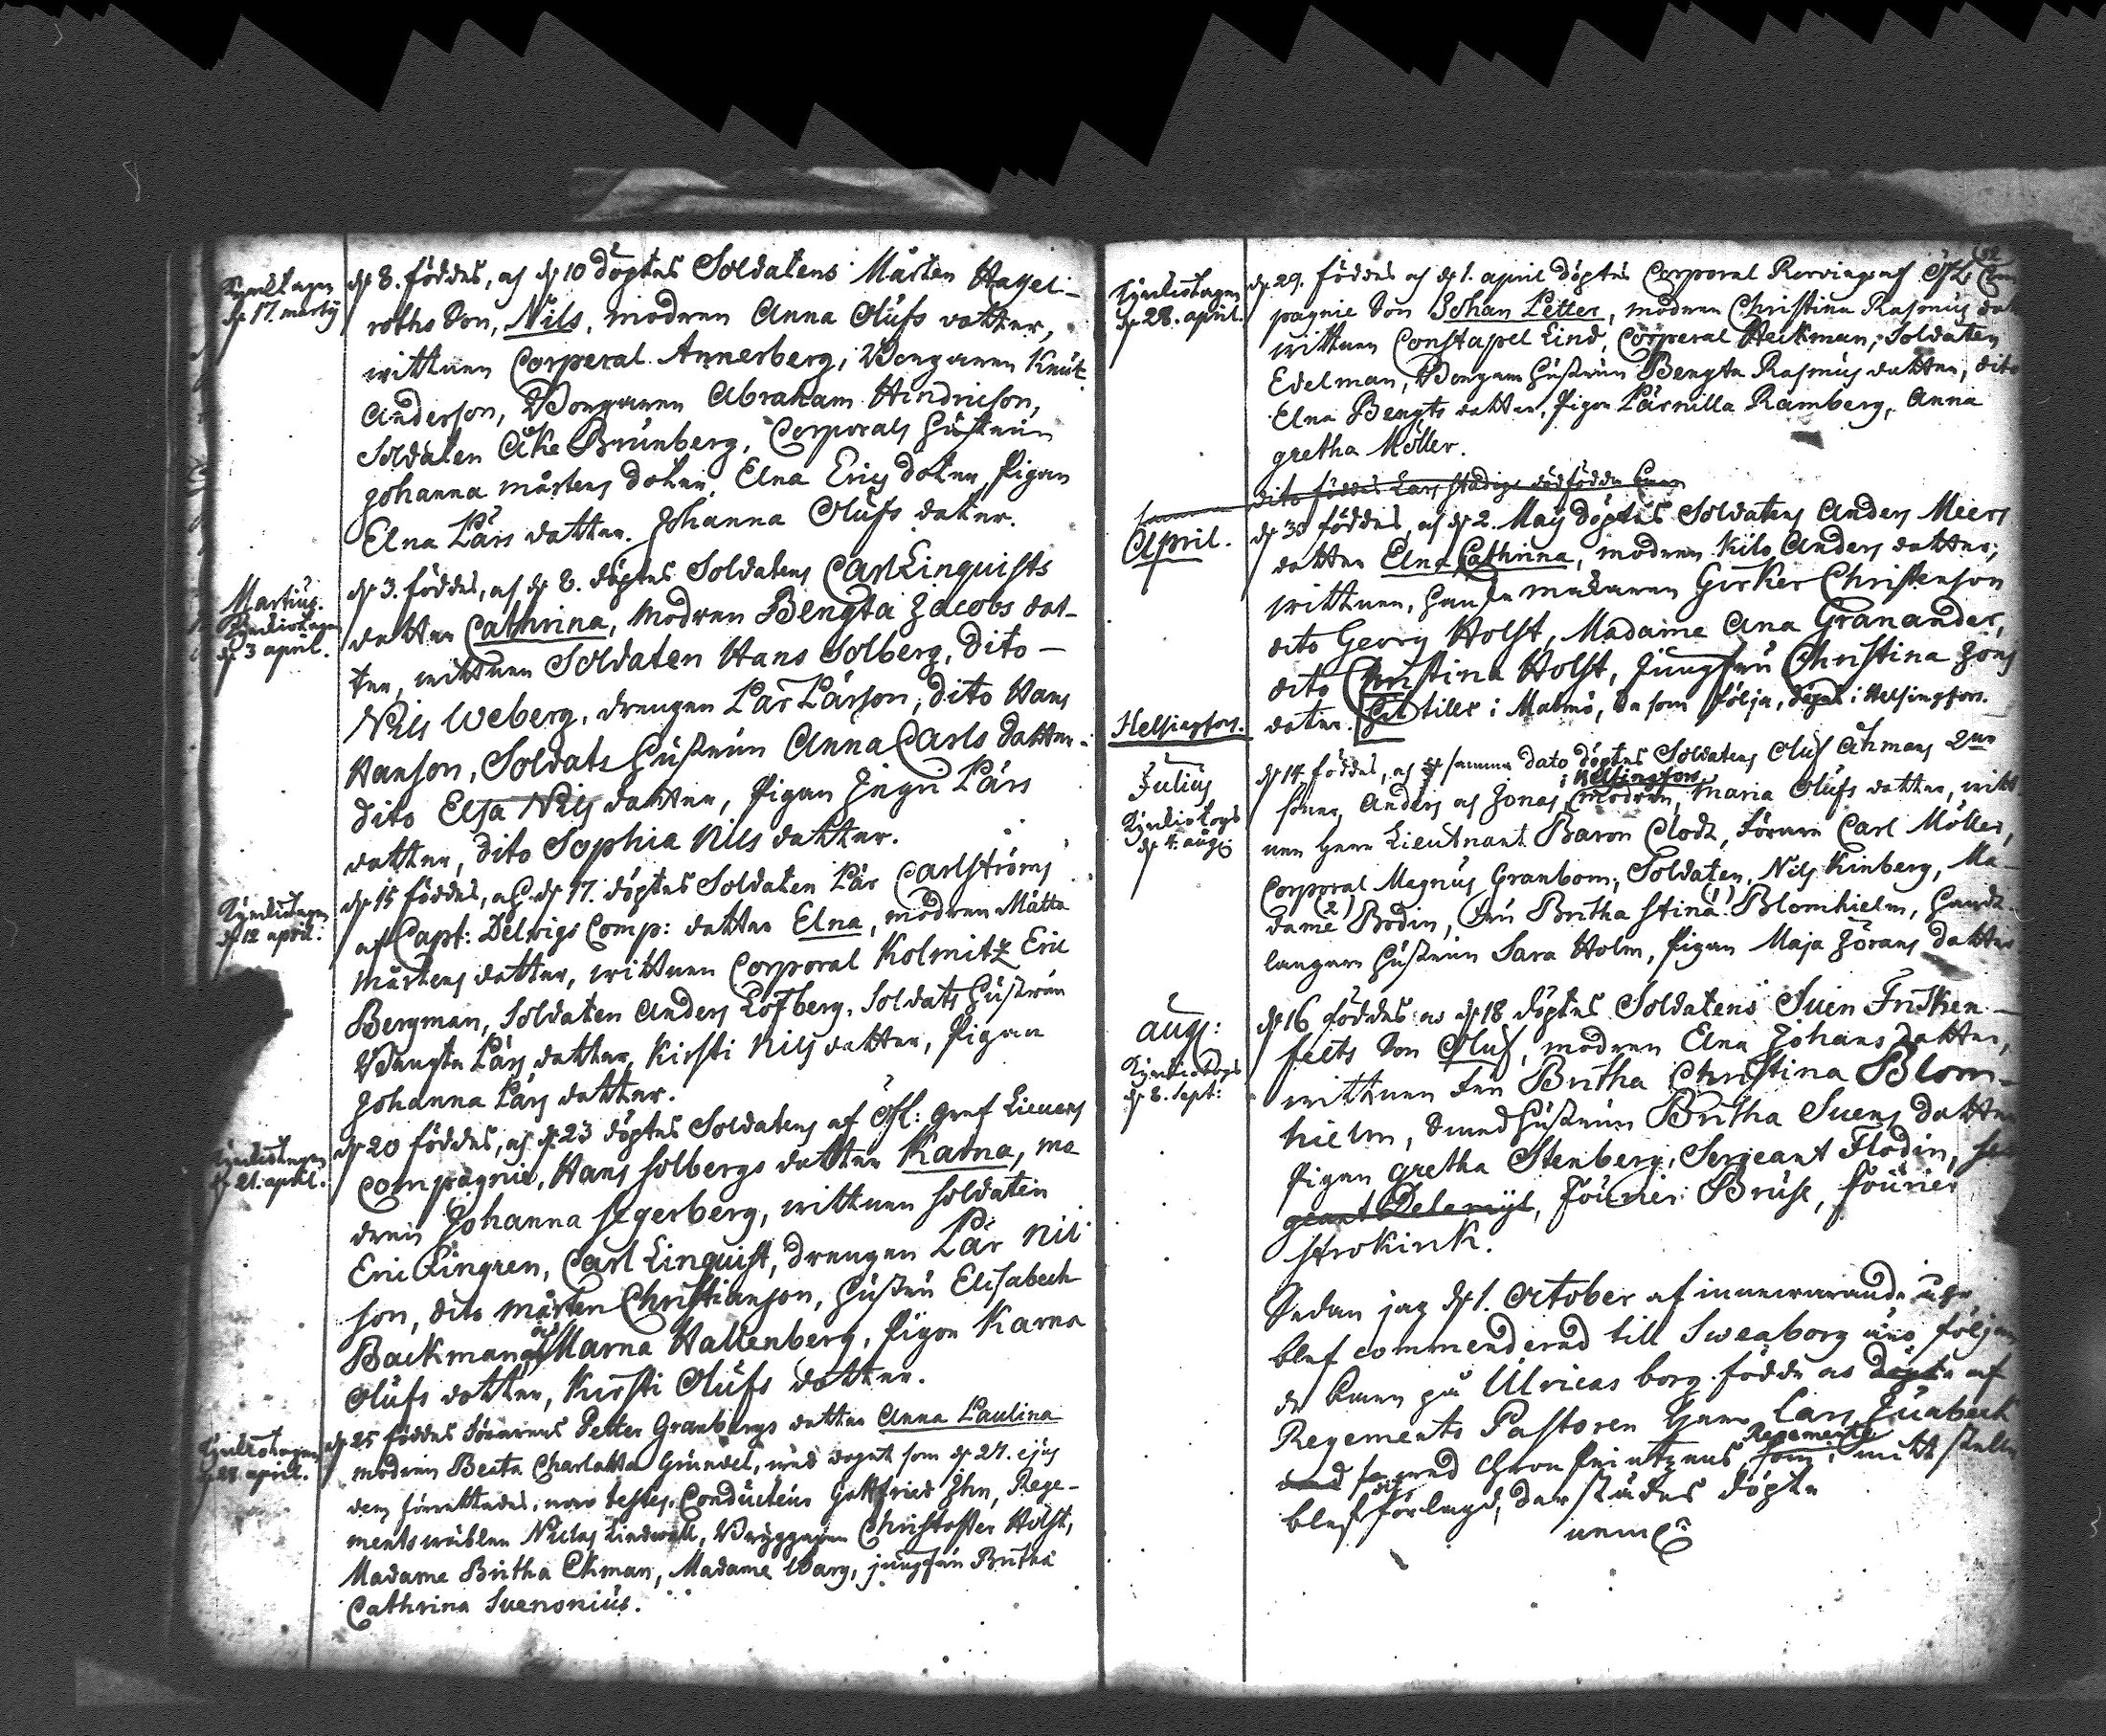 Kyrktagen
d 17. martij
d 8. föddes, och d 10 döptes Soldatens Mårten Hagel-
roths Son, Nils, modren Anna Olufs dotter,
wittnen Corperal Annerberg, Borgaren Knut
Anderson, Borgaren Abraham Hindricson,
Soldaten Åke Brunberg, Corporals hustrun
Johanna mårtens doter, Elna Erics doter, Pigan
Elna Pärs dotter. Johanna Olufs doter.
Martius.
Kyrkiotagen
d 3 april.
d 3. föddes, och d 8. döptes Soldatens Carl Linquists
dotter Cathrina, modren Bengta Jacobs dot-
ter, wittnen Soldaten Hans Solberg, dito
Nils Weberg, drengen Pär Pärson, dito Hans
Hanson, Soldats hustrun Anna Carls dotter.
dito Elsa Nils dotter, Pigan Ingri Pärs
dotter, dito Sophia Nils dotter.
Kyrkiotagen
d 12 april.
d 15 föddes, och d 17. döptes Soldaten Pär Carlströms
af Capt: Delwigs Comp: dotter Elna, modren Mätta
Mårtens dotter, wittnen Corporal Kolmitz Eric
Bergman, Soldaten Anders Löfberg, Soldats hustrun
Bengta Pärs dotter, Kirsti Nils dotter, Pigan
Johanna Pärs dotter.
Kyrkiotagen
d 21. april.
d 20 föddes, och d 23 döptes Soldatens af Öfl: Gref Lieuens
Compagnie, Hans Solbergs dotter Karna, mo
dren Johanna Segerberg, wittnen soldaten
Eric Lingren, Carl Linquist, drengen Pär Nil
son, dito mårten Christianson, hustru Elisabeth
Backman, och Marna Hallenberg, Pigan Karna
Olufs dotter, Kirsti Olufs dotter.
Kyrkiotagen
d 28. april.
d 25 föddes Förarens Petter Granbergs dotter Anna Paulina
modren Beata Charlotta Grundel, wid dopet som d 27. ejus
dem förrättades, woro testes, Conducteur Gottfried Ihn, Rege-
ments wäblen Niclas Lindwall, Bryggaren Christoffer Holst,
Madame Britha Ekman, Madame Warg, jungfrun Britha
Cathrina Suenonius.
Kyrkiotagen
d 28. april.
d 29. föddes och d 1. april döptes Corporal Rorwings af Öfl: Com
pagnie Son Johan Petter, modren Christina Rasmus dot
wittnen Constapel Lind, Corperal Heckman, Soldaten
Edelman, Borgare hustrun Bengta Rasmus dotter, dito
Elna Bengts dotter, Pigan Pärnilla Ramberg, Anna
gretha Möller.
dito föddes Lars Stadigs dödfödda barn
April.
d 30 föddes, och d 2. Maij döptes Soldatens Anders Meers
dotter Elna Cathrina, modren Kilo Anders dotter,
wittnen, handskemakaren Gerker Christenson
dito Georg Holst, Madame Ana Granander,
dito Christina Holst, Jungfru Christina Jöns
doter. Hit tiller i Malmö, de som följa, döpte i Helsingfors.
Helsingfors.
Julius
Kyrkiotogs
d 4. aug:
d 14 föddes, och samma dato döptes Soldatens Oluf Åhmans 2ne
i Helsingfors
söner, Anders och Jonas, modren, Maria Olufs dotter, witt
nen Herr Lieutnant Baron Clodt, Föraren Carl Möller,
Corporal Magnus Granbom, Soldaten, Nils Kinberg, Ma-
dame (2) Bodin, fru Britha Stina (1) Blomhielm, handt-
langare hustrun Sara Holm, Pigan Maja Jörans dotter
aug:
Kyrkiotogs
d 8. sept:
d 16 föddes och d 18 döptes Soldatens Suen Frisken-
felts Son Oluf, modren Elna Johans dotter,
wittnen Fru Britha Christina Blom-
hielm, Smed hustrun Britha Suens dotter
Pigan gretha Stenberg, Sergeant Flodin, ser
geant, Fourier Bruse, fourier
Strokirk.
Sedan jag d 1. October af innewarande åhr
blef commenderad till Sweaborg äro följan
de barn på Ulricas borg födde och döpte af
Regements Pastoren Herr Lars
Regemente
med Cronprintzens som i mitt ställe
blef förlagd, derstädes döpte